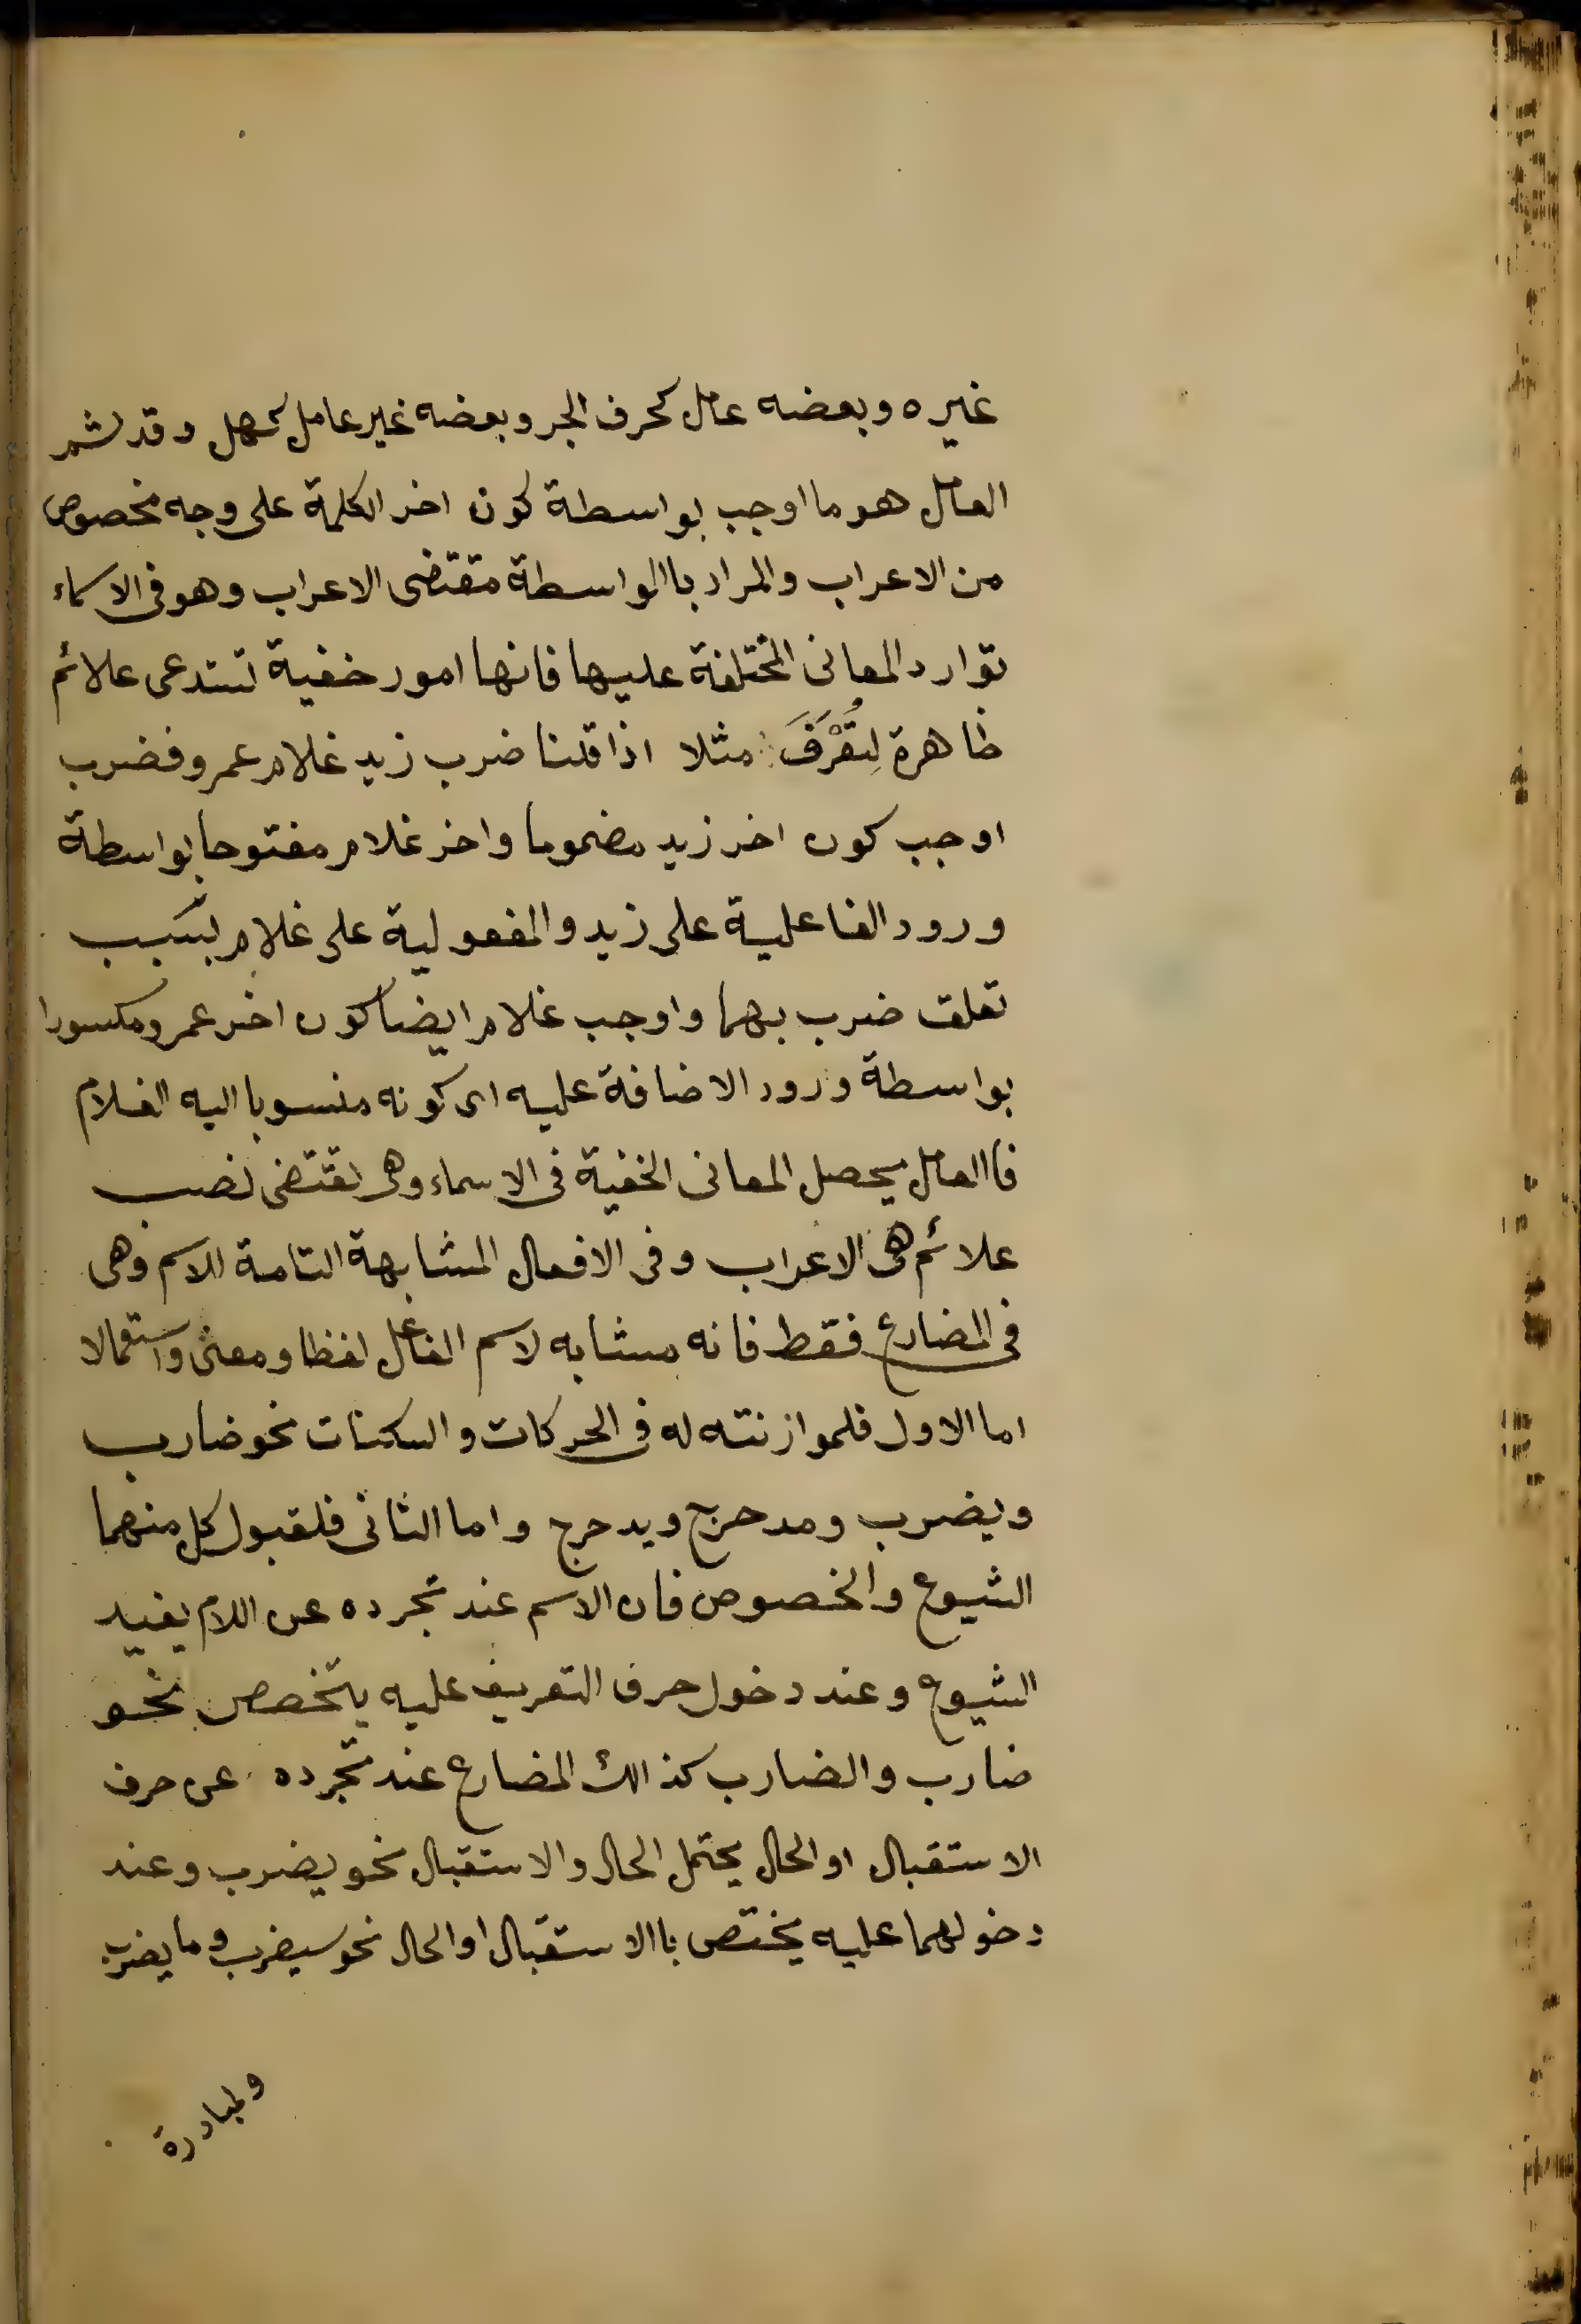 غيره وبعضه عامل كحرف الجر وبعضه غير عامل كهل وقد ثم
العامل هو ما اوجب بواسطة كون اخر الكلمة على وجه مخصوص
من الاعراب والمراد باالواسطة مقتضى الاعراب وهو فى الاسماء
توارد المعانى المختلفة عليها فانها امور خفية تستدعى علائم
ظاهرة لِتُعْرَفَ مثلا اذا قلنا ضرب زيد غلام عمرو فضرب
اوجب كون اخر زيد مضموما واخر غلام مفتوحا بواسطة
ورود الفاعلية على زيد والمفعولية على غلام بسبب
تعلق ضرب بهما واوجب غلام ايضا كون اخر عمرو مكسورا
بواسطة ورود الاضافة عليه اى كونه منسوبا اليه الغلام
فاالعامل يحصل المعانى الخفية فى الاسماء وهى تقتضى نصب
علائم هى الاعراب وفى الافعال المشابهة التامة للاسم وهى
فى المضارع فقط فانه مشابه لاسم الفاعل لفظا ومعنى واستعمالا
اما الاول فلموازنته له فى الحركات والسكنات نحو ضارب
ويضرب ومدحرج ويدحرج واما الثانى فلقبول كل منهما
الشيوع والخصوص فان الاسم عند تجرده عن اللام يفيد
الشيوع وعند دخول حرف التعريف عليه يتخصص نحو
ضارب والضارب كذالك المضارع عند تجرده عن حرف
الاستقبال او الحال يحتمل الحال والاستقبال نحو يضرب وعند
دخولهما عليه يختص باالاستقبال او الحال نحو سيضرب وما يضرب
ولمبادرة